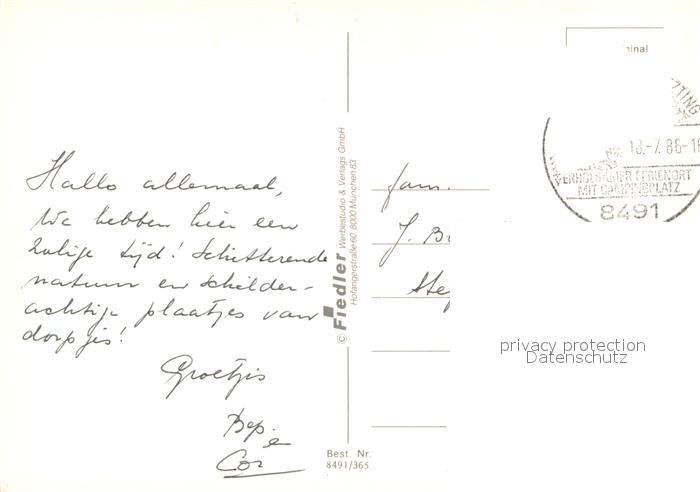 Hallo allemaal,
We hebben hier een
zalige tijd! Schitterende
natuur en schilder-
achtige plaatjes van
dorpjes!
Groetjes
Bep.
e
Cor
© Fiedler Werbestudio & Verlags GmbH
Hofangerstraße 60 8000 München 83
Best. Nr.
8491/365
fam.
J. B
Ste
privacy protection
Datenschutz
ZTING
18.-7.86-18
ERHOLSAMER FERIENORT
MIT CAMPINGPLATZ
8491